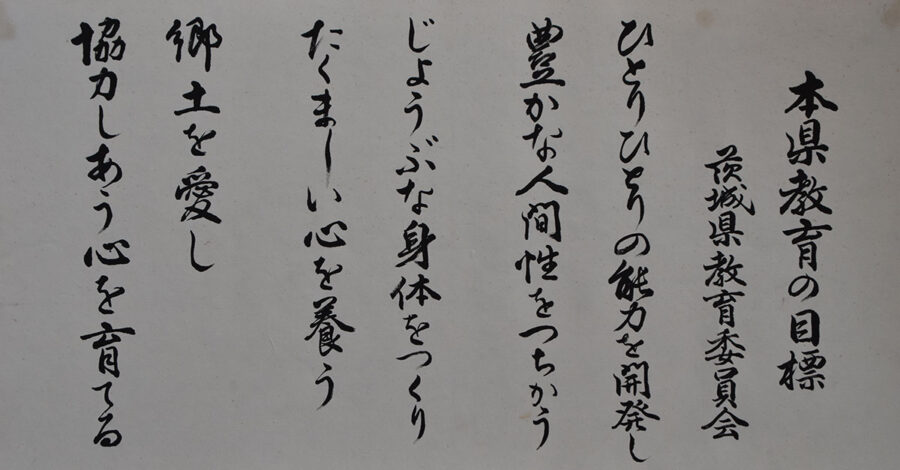 本県教育の目標
茨城県教育委員会
ひとりひとりの能力を開発し
豊かな人間性をつちかう
じょうぶな身体をつくり
たくましい心を養う
郷土を愛し
協力しあう心を育てる